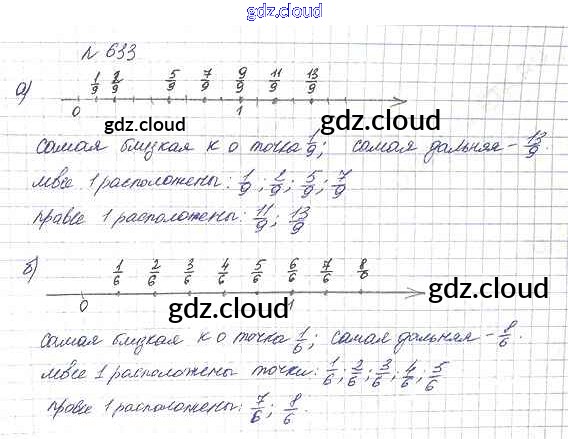 gdz.cloud
№ 633
а) 1/9 2/9 5/9 7/9 9/9 11/9 13/9
0 1
gdz.cloud gdz.cloud
самая близкая к 0 точка 1/9; самая дальняя - 13/9.
левее 1 расположены: 1/9; 2/9; 5/9; 7/9
правее 1 расположены: 11/9; 13/9
б) 1/6 2/6 3/6 4/6 5/6 6/6 7/6 8/6
0 1
gdz.cloud gdz.cloud
самая близкая к 0 точка 1/6; самая дальняя - 8/6.
левее 1 расположены точки: 1/6; 2/6; 3/6; 4/6; 5/6
правее 1 расположены: 7/6; 8/6.
gdz.cloud